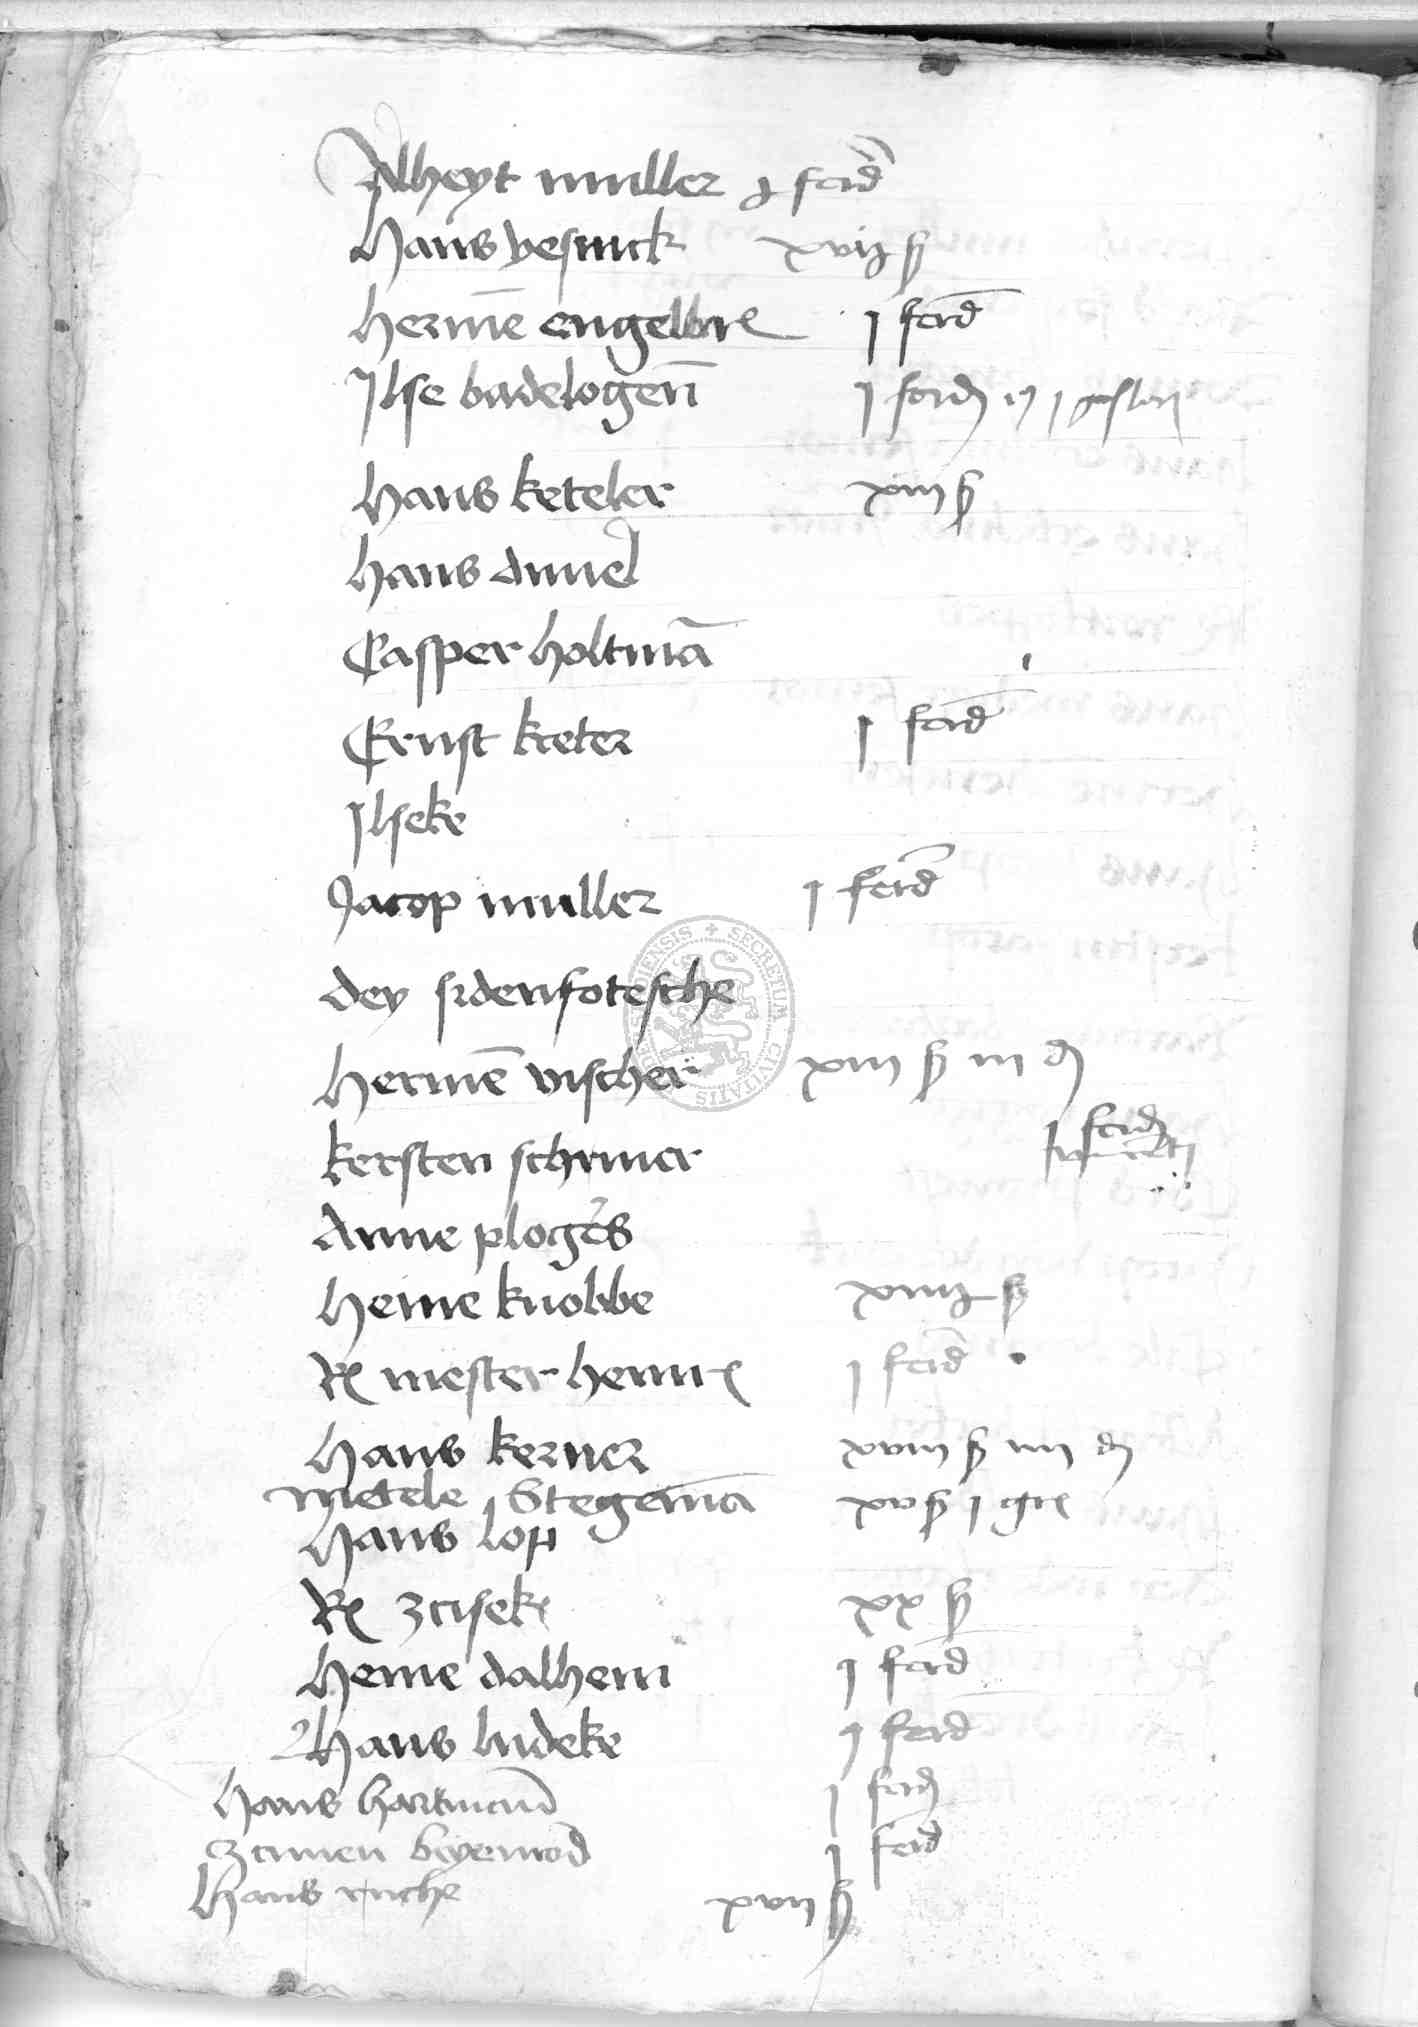 Alheyt muller j ferd
Hans vesinck xvij ß
Hermē engelbr j ferd
Ilse badelogen̄ j ferd j
Hans keteler xiii ß
Hans
Casper holtmā
Ernst kreter j ferd
Ilseke
Jacop muller j ferd
dey sidenfotesche
Hermē vischer xiii ß iii d
kersten schriver ferd
Anne ploges
Heine knobbe xiiij ß
R mester henni j ferd
Hans kerner xviii ß iiii d
metele Stegemā xv ß j gr
Hans lop
R zciseke xx ß
Heine dalhem j ferd
Hans ludeke j ferd
Hans hartman j ferd
Zcimen j ferd
Hans xvii ß
SECRETUM CIVITATIS